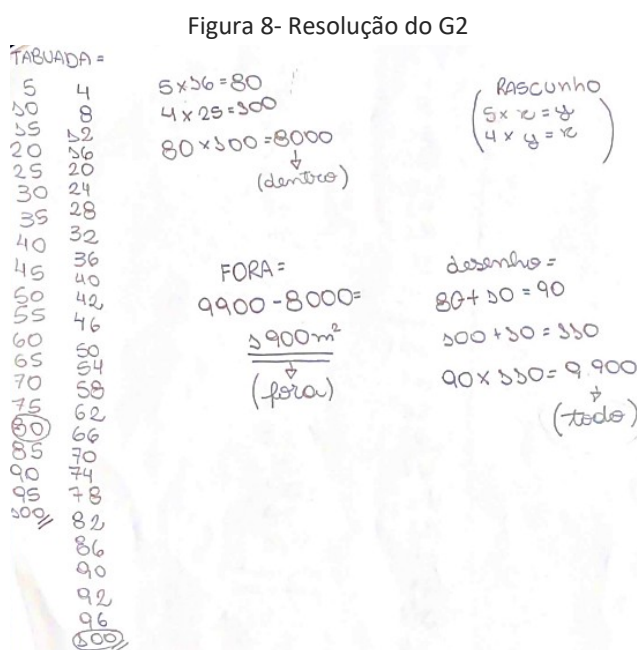 Figura 8- Resolução do G2
TABUADA =
5
10
15
20
25
30
35
40
45
50
55
60
65
70
75
80
85
90
95
100//
4
8
12
16
20
24
28
32
36
40
42
46
50
54
58
62
66
70
74
78
82
86
90
92
96
100//
5x16=80
4x25=100
80x100=8000
(dentro)
RASCUNHO
5x x = y
4x y = x
FORA =
9900-8000=
1900m²
(fora)
desenho =
80+10=90
100+10=110
90x110=9.900
(todo)